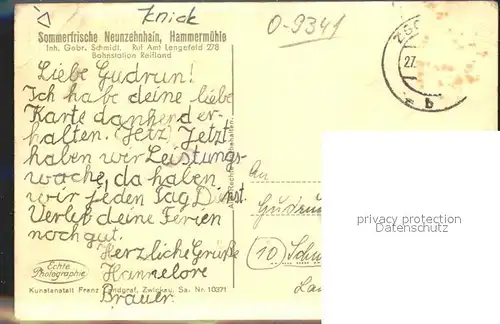 Knick
O-9341
Sommerfrische Neunzehnhain, Hammermühle
Inh. Gebr. Schmidt. Ruf Amt Lengefeld 278
Bahnstation Reifland
Liebe Gudrun!
Ich habe deine liebe
Karte dankend er-
halten. Jetz Jetzt
haben wir Leistungs-
woche, da haben
wir jeden Tag Dienst.
Verleb deine Ferien
noch gut.
Herzliche Grüße
Hannelore
Brauer.
Echte
Photographie
Kunstanstalt Franz Landgraf, Zwickau, Sa. Nr. 10371
Alle Rechte vorbehalten.
27.
b
An
Gudrun
(10)
privacy protection
Datenschutz